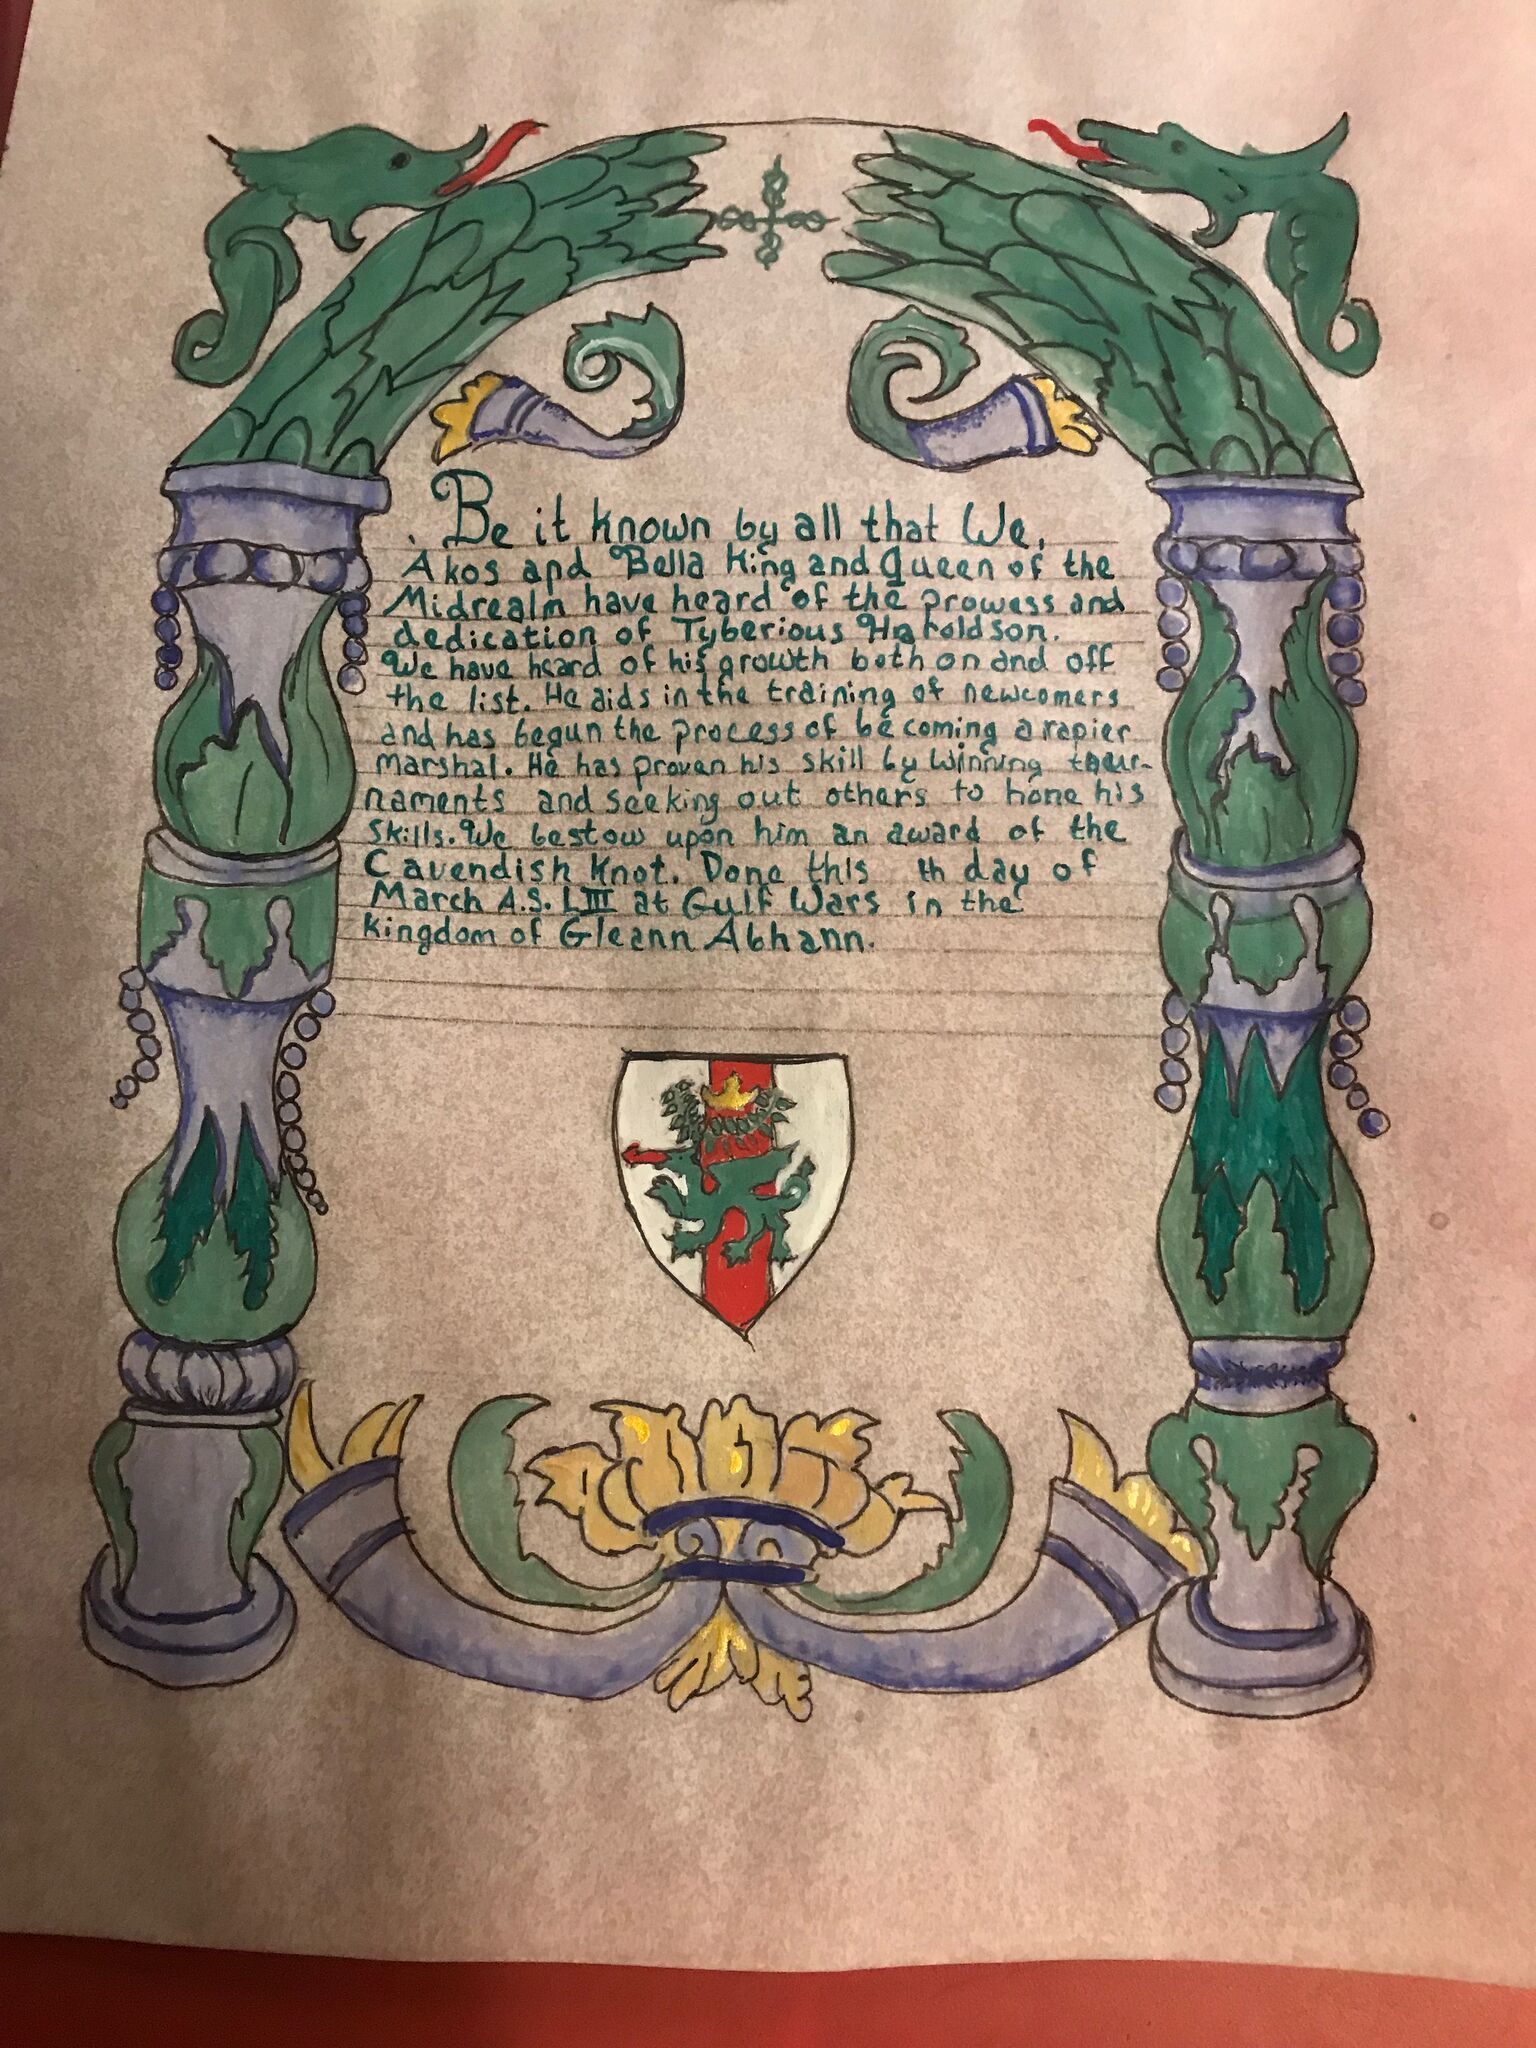 Be it known by all that We,
Akos and Bella King and Queen of the
Midrealm have heard of the prowess and
dedication of Tyberious Haroldson.
We have heard of his growth both on and off
the list. He aids in the training of newcomers
and has begun the process of becoming a rapier
marshal. He has proven his skill by winning tour-
naments and seeking out others to hone his
skills. We bestow upon him an award of the
Cavendish Knot. Done this th day of
March A.S. LIII at Gulf Wars in the
kingdom of Gleann Abhann.